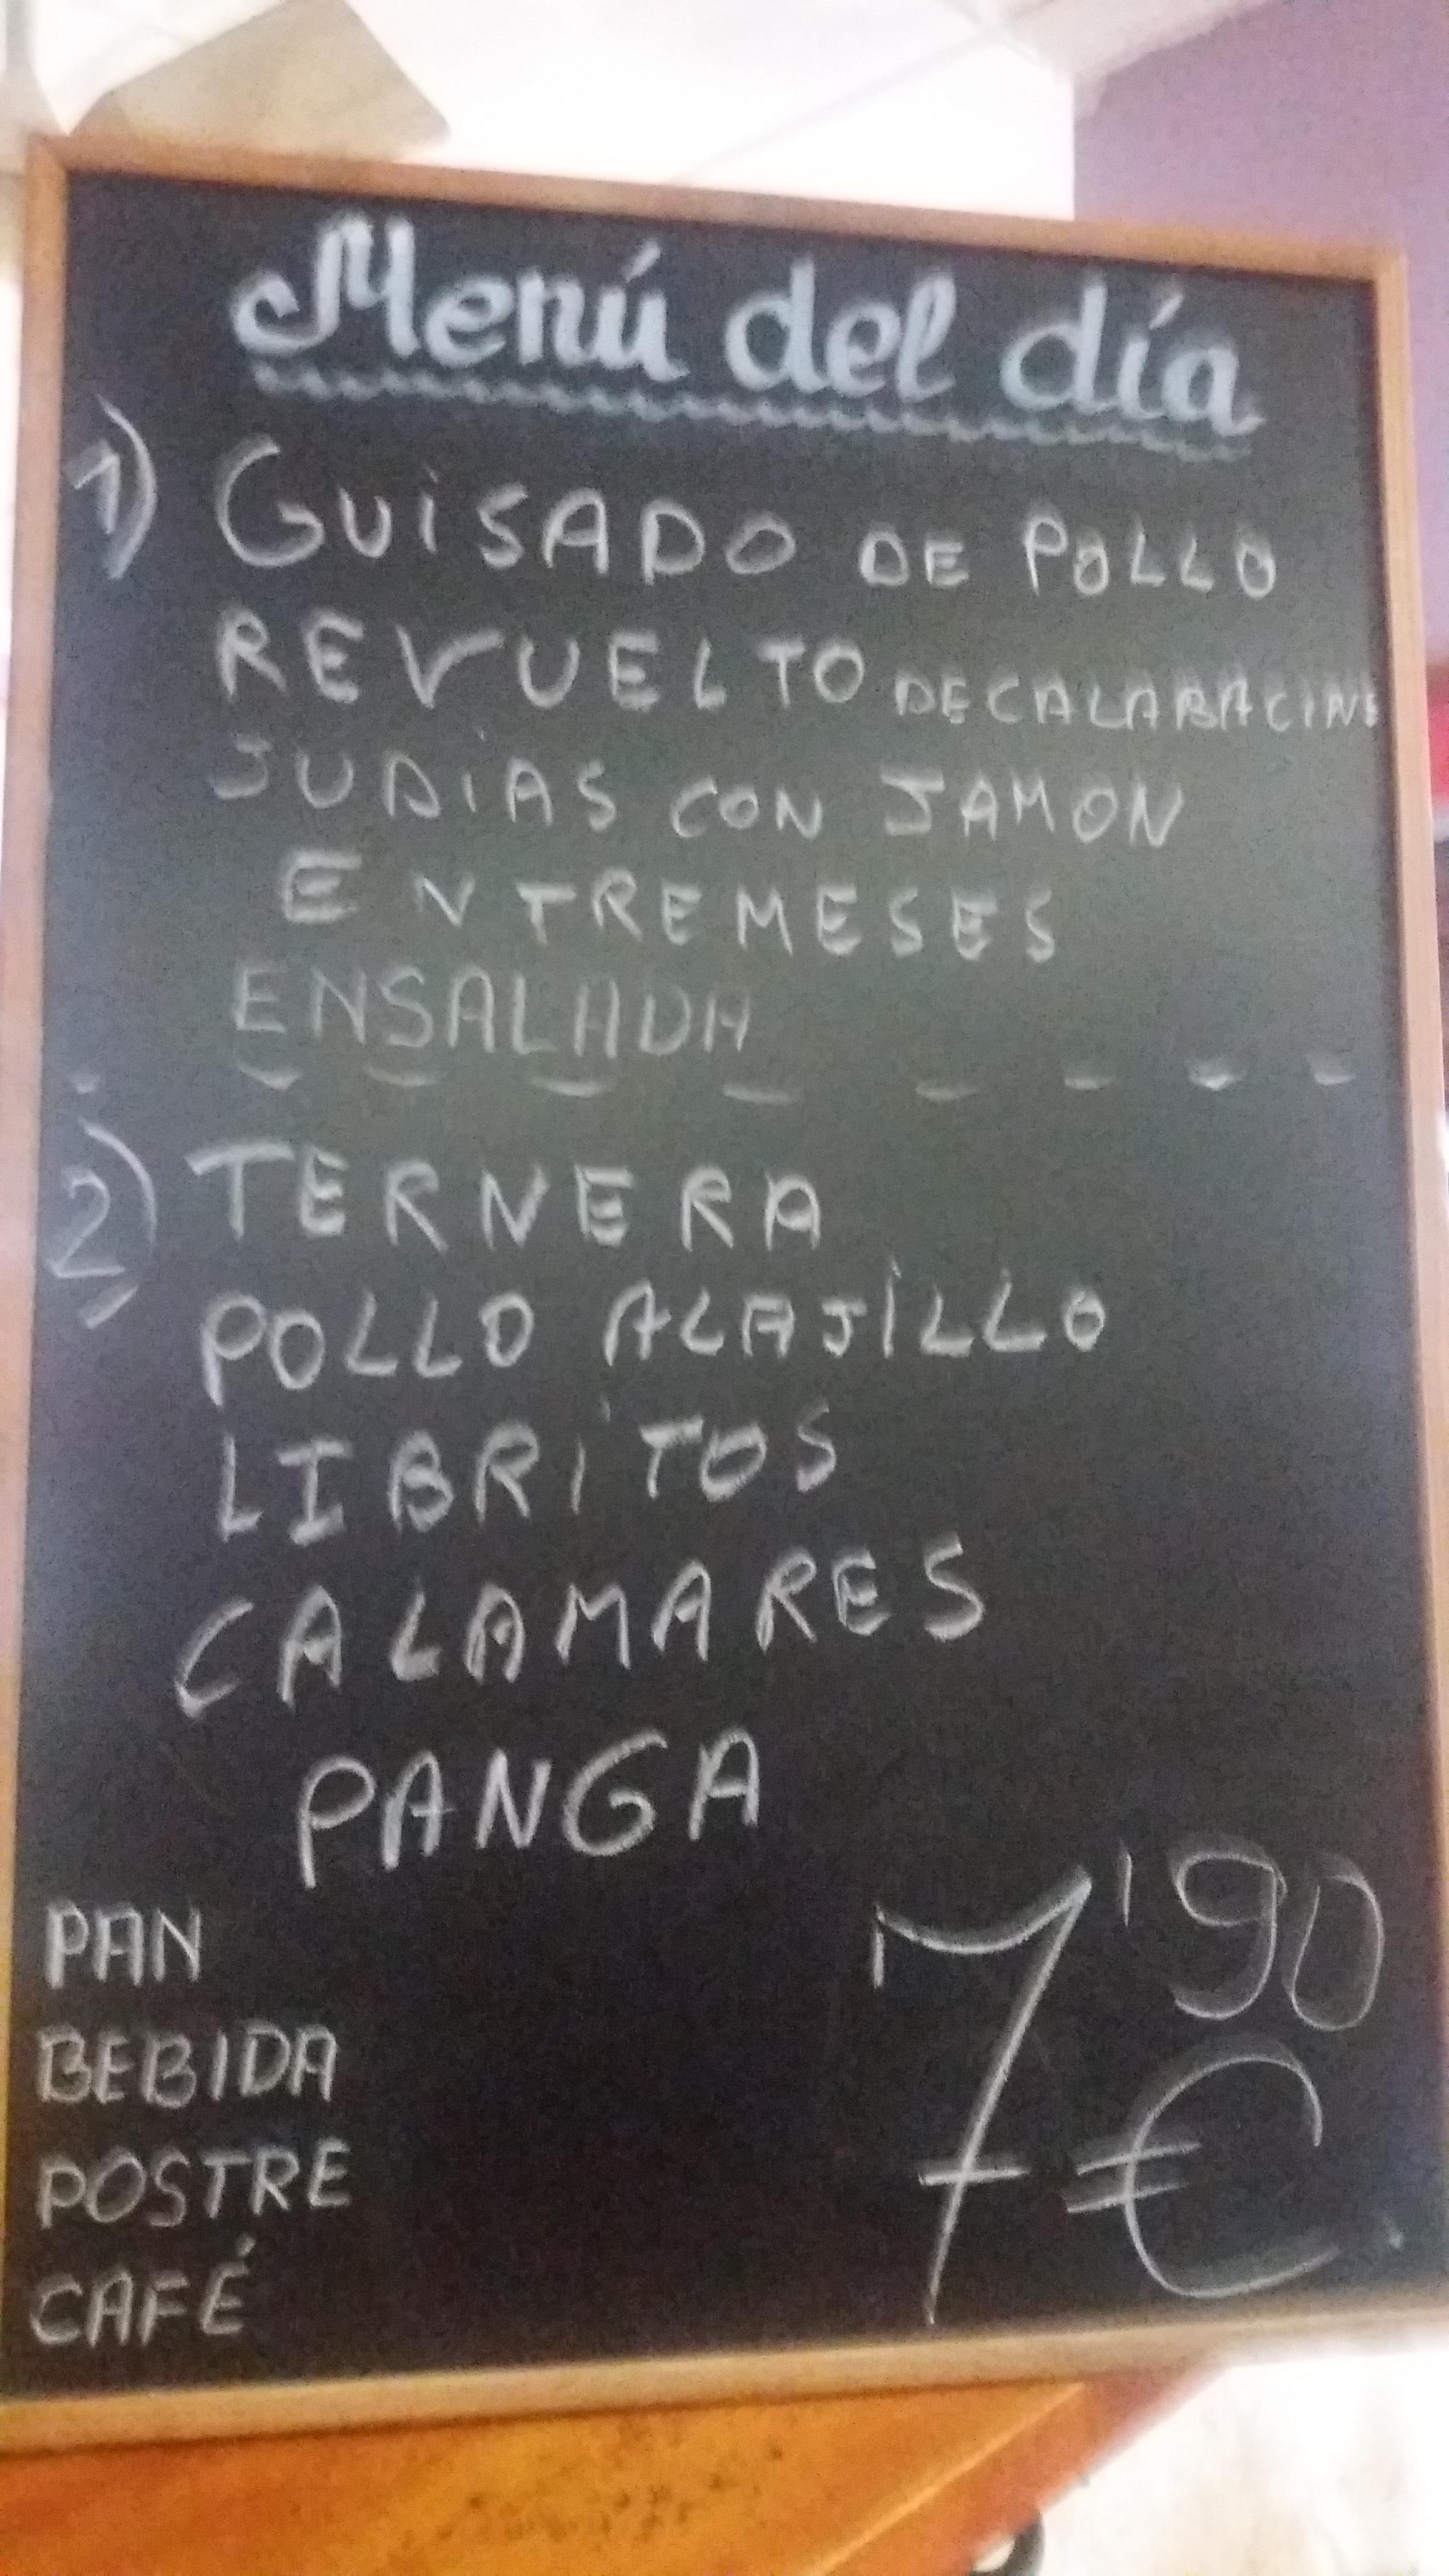 Menú del día
1) GUISADO DE POLLO
REVUELTO DE CALABACINE
JUDIAS CON JAMON
ENTREMESES
ENSALADA
2) TERNERA
POLLO ALAJILLO
LIBRITOS
CALAMARES
PANGA
PAN
BEBIDA
POSTRE
CAFÉ
7'90
€